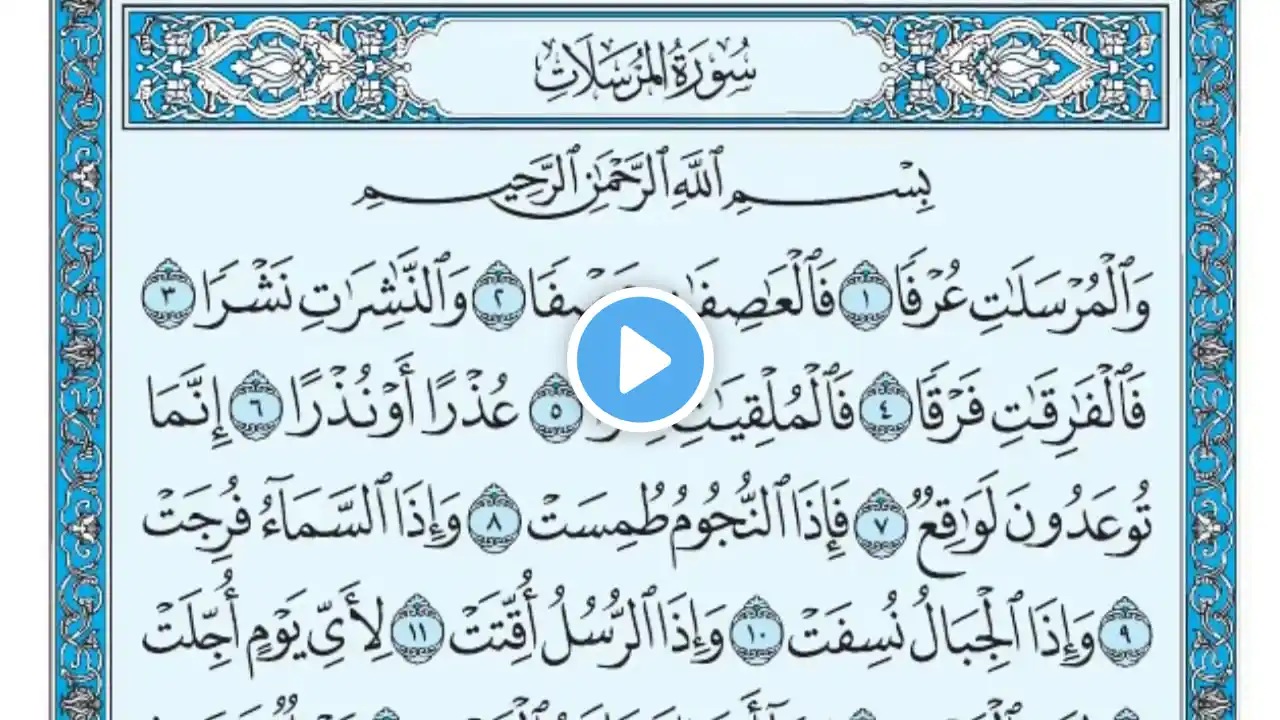 سُورَةُ المُرْسَلَاتِ
بِسْمِ ٱللَّهِ ٱلرَّحْمَٰنِ ٱلرَّحِيمِ
وَٱلْمُرْسَلَٰتِ عُرْفًا ١ فَٱلْعَٰصِفَٰتِ عَصْفًا ٢ وَٱلنَّٰشِرَٰتِ نَشْرًا ٣
فَٱلْفَٰرِقَٰتِ فَرْقًا ٤ فَٱلْمُلْقِيَٰتِ ٥ عُذْرًا أَوْ نُذْرًا ٦ إِنَّمَا
تُوعَدُونَ لَوَٰقِعٌ ٧ فَإِذَا ٱلنُّجُومُ طُمِسَتْ ٨ وَإِذَا ٱلسَّمَآءُ فُرِجَتْ
٩ وَإِذَا ٱلْجِبَالُ نُسِفَتْ ١٠ وَإِذَا ٱلرُّسُلُ أُقِّتَتْ ١١ لِأَيِّ يَوْمٍ أُجِّلَتْ